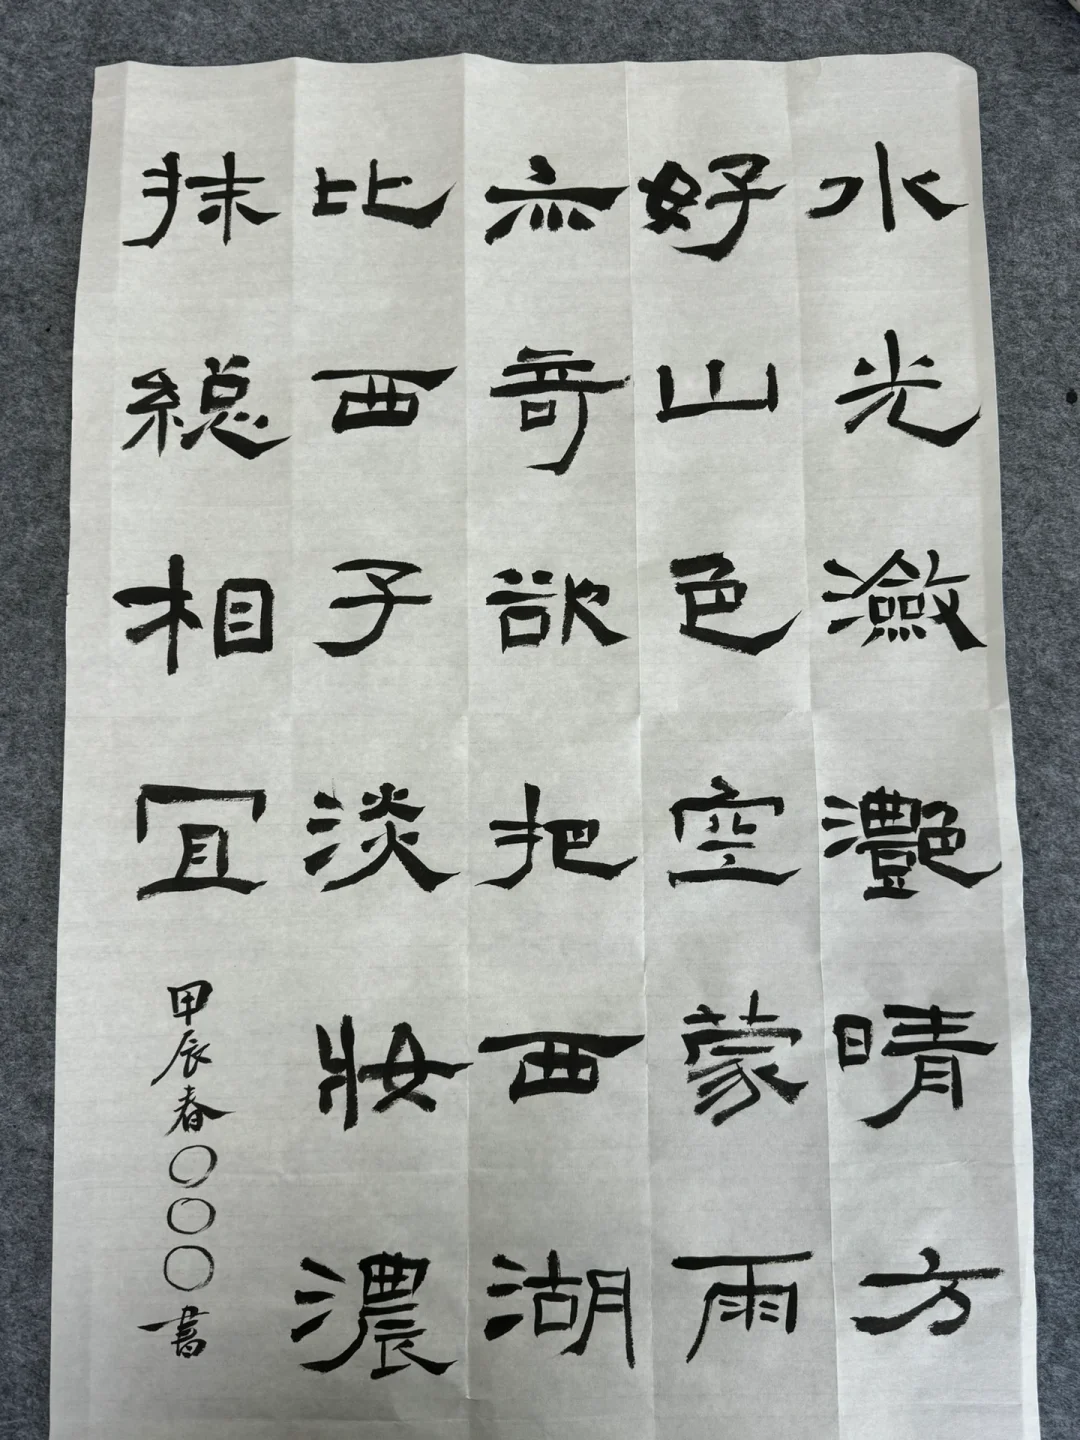 水光瀲灩晴方
好山色空蒙雨
亦奇欲把西湖
比西子淡妝濃
抹總相宜
甲辰春〇〇〇書